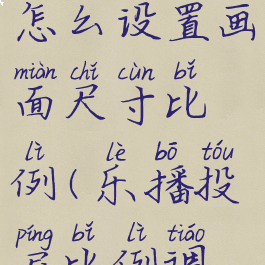 怎么设置画
miàn chǐ cùn bǐ
面尺寸比
lì lè bō tóu
例(乐播投
píng bǐ lì tiáo
比例调